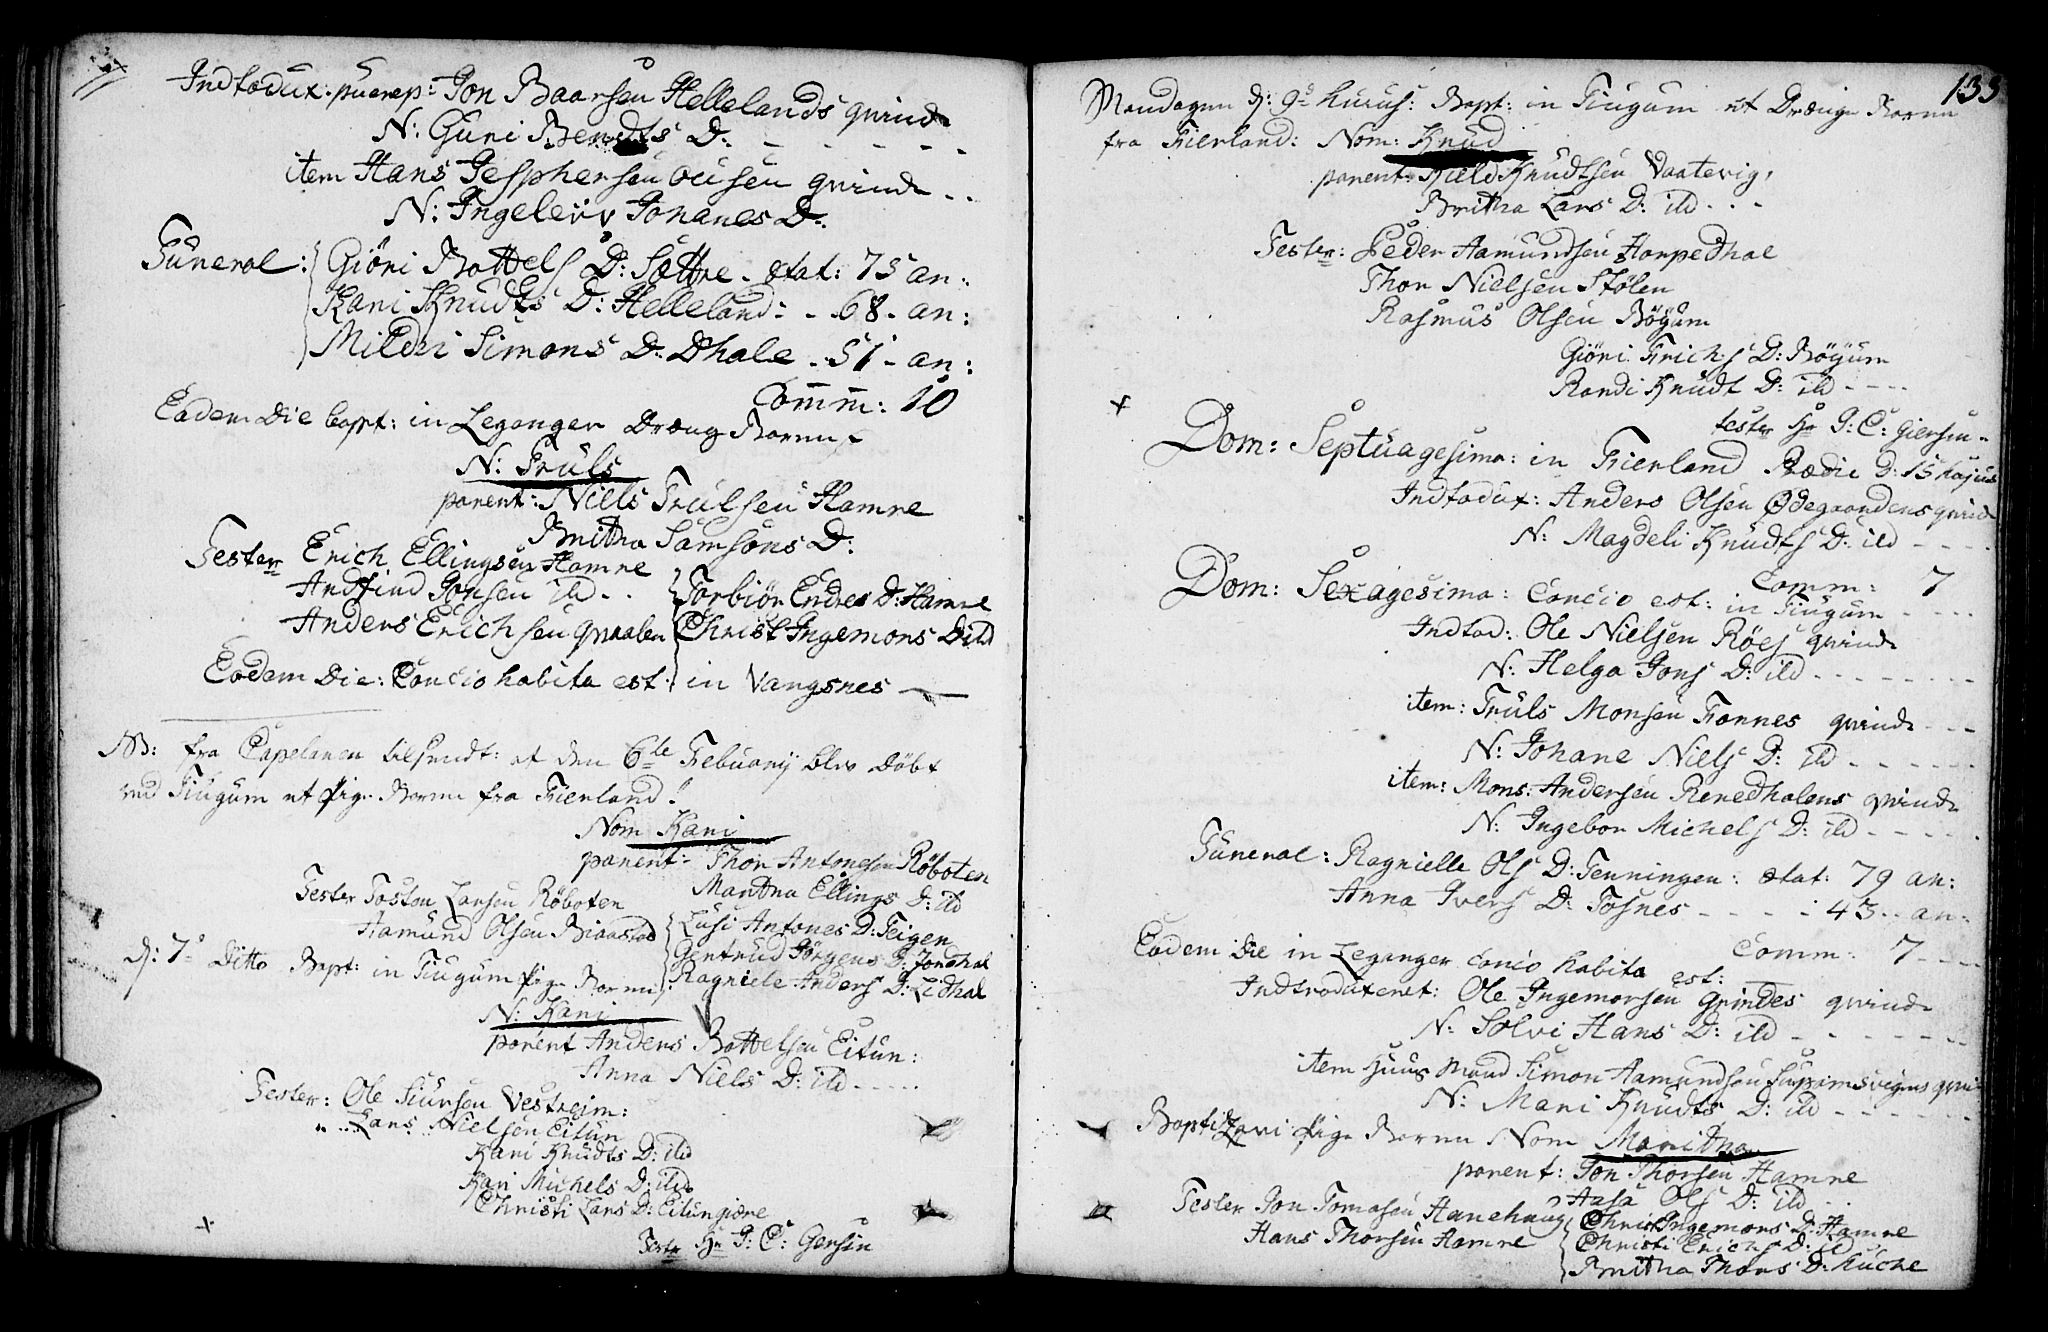 Indtodux: puerep: Jon Baarsen Hellelands qvinde
N: Guri Bendts D. - - - - -
item Hans Jesphersen ousen qvinde - -
N: Ingelevv Johanes D.
Funeral: Giöri Bottels D: Sættre - ætat: 75 an:
Kari Knudts D: Helleland: - 68 - an:
Mildri Simons D. Dhale - 51 - an:
Comm: 10
Eodem Die bapt: in Leganger Dræng Barnn
N: Truls
parent: Niels Trulsen Hamre
Britha Samsons D:
Tester Erich Ellingsen Hamre
Andfind Jonsen ild - -
Anders Erichsen qvaalen
Torbiör Endres D: Hamre
Christ Ingemons D ild
Eodem Die: Concio habita est: in Vangsnes
NB: fra Capelanen tilsendt: at den 6te Febuarij blev Döbt
ved Tiugum et Pige Barnn fra Fierland:
Nom Kari
parent: Thor Antonesen Röboten
Maritha Ellings D: ild
Tester Toston Larsen Röboten
Aamund Olsen Biaastad
Lusi Antones D: Teigen
Gertrud Jörgens D: Jondhal
Ragniele Anders D: Lidhal
D: 7de Ditto Bapt: in Tiugum Pige Barnn
N: Kari
parent Anders Bottelsen Eitun:
Anna Niels D: ild - - - -
Tester: Ole Siursen Vestreim:
Lars Nielsen Eitun
Kari Knudts D: ild
Kari Michels D: ild
Christi Lars D: Eitungiære
Test Hr J: C: Giersin
133
Mandagen D: 9de hujus: Bapt: in Tiugum et Dræng Barnn
fra Fierland: Nom: Knud
parent: Kield Knudtsen Vaatevig,
Britha Lars D: ild - - -
Tester: Peder Aamundsen Harpedhal
Thor Nielsen Stölen
Rasmus Olsen Böyum
Giöri Erichs D: Böyum
Randi Knudt D: ild - - - -
tester Hr J: C: Giersin -
Dom: Septuagesima: in Fierland Prædic D: 15 hujus
Indtodux: Anders Olsen Ødegaardens qvind
N: Magdeli Knudts D: ild - - - -
Comm: 7
Dom: Sexagesima: Concio est: in Tiugum - - - -
Indtod: Ole Nielsen Röes qvinde
N: Helga Jons D: ild - - - - - - -
item: Truls Monsen Fonnes qvinde - - -
N: Johane Niels D: ild - - - - - -
item: Mons: Andersen Renedhalens qvinde
N: Ingebor Michels D: ild - - - - -
Funeral: Ragnielle Ols D: Tenningen: ætat: 79 an:
Anna Ivers D: Fosnes - - - - 43 - - an:
Comm: 7 - - - -
Eodem Die in Leganger concio habita est:
Indtroduxeret: Ole Ingemonsen Grindes qvinde
N: Solvi Hans D: ild - - - - - -
item Huus Mand Simon Aamundsen qvi
N: Mari Knudts D: ild - - - - - -
Baptizavi Pige Barnn Nom Maritha
parent: Jon Thorsen Hamre
Aasa Ols D: ild - -
Tester Jon Tomasen Hanehaug
Hans Thorsen Hamre
Christ Ingemons D: Hamre
Christi Erichs D: ild
Britha Thors D: Huche